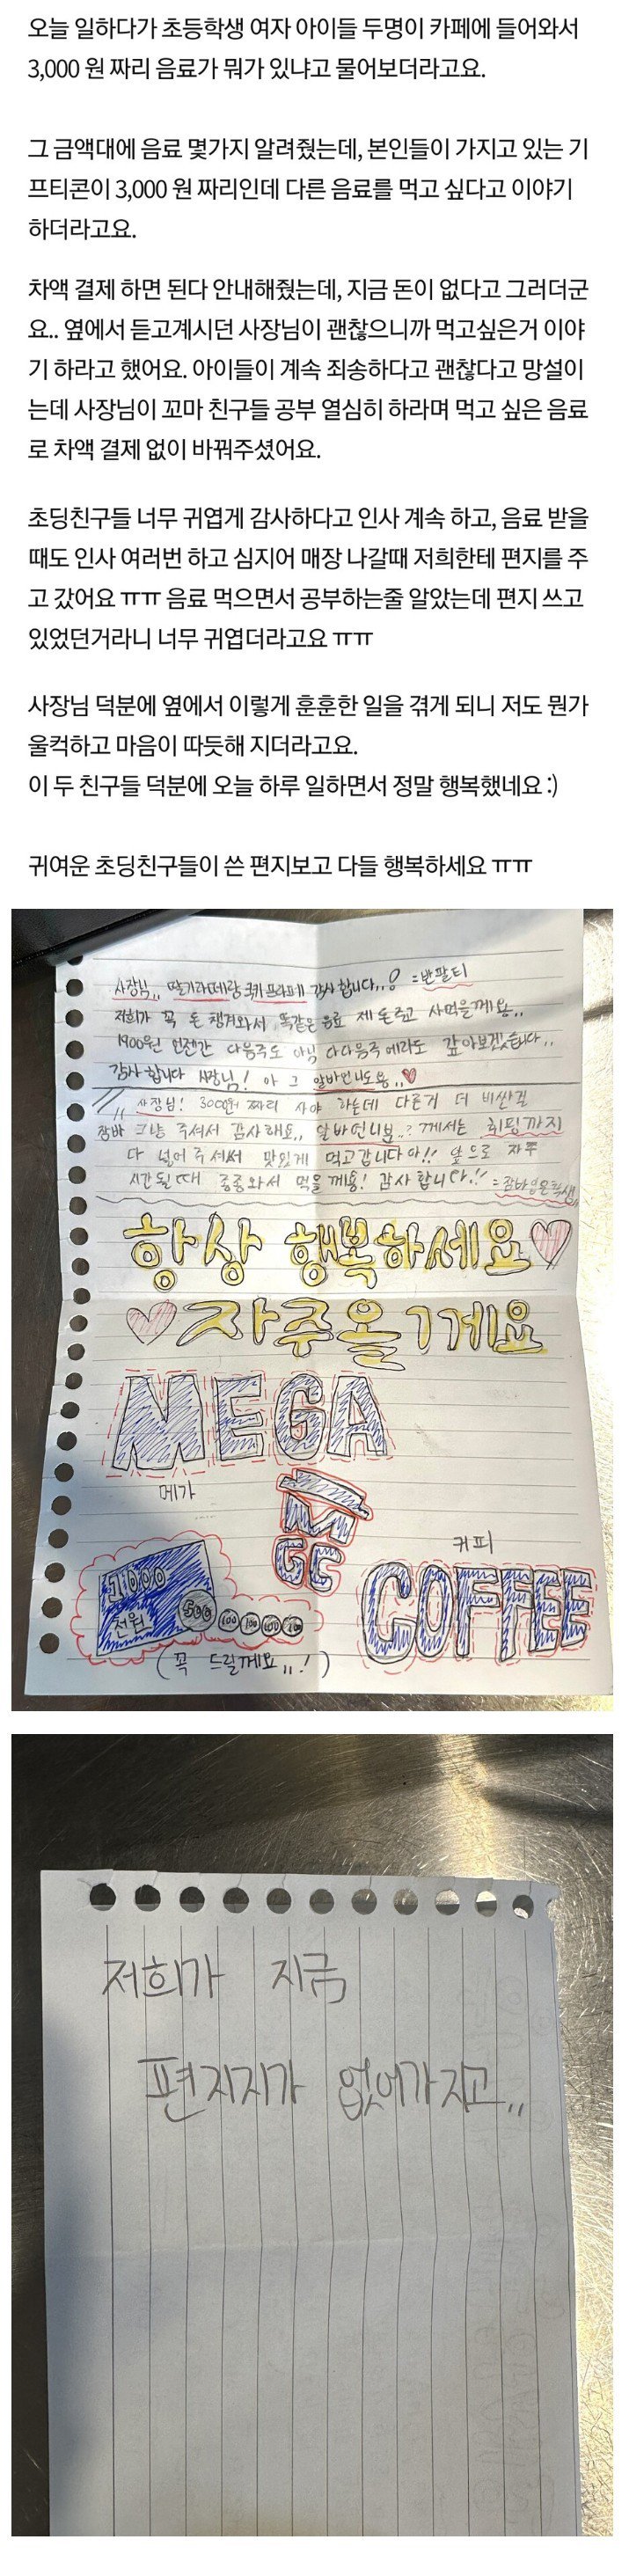 오늘 일하다가 초등학생 여자 아이들 두명이 카페에 들어와서
3,000 원 짜리 음료가 뭐가 있냐고 물어보더라고요.
그 금액대에 음료 몇가지 알려줬는데, 본인들이 가지고 있는 기
프티콘이 3,000 원 짜리인데 다른 음료를 먹고 싶다고 이야기
하더라고요.
차액 결제 하면 된다 안내해줬는데, 지금 돈이 없다고 그러더군
요.. 옆에서 듣고계시던 사장님이 괜찮으니까 먹고싶은거 이야
기 하라고 했어요. 아이들이 계속 죄송하다고 괜찮다고 망설이
는데 사장님이 꼬마 친구들 공부 열심히 하라며 먹고 싶은 음료
로 차액 결제 없이 바꿔주셨어요.
초딩친구들 너무 귀엽게 감사하다고 인사 계속 하고, 음료 받을
때도 인사 여러번 하고 심지어 매장 나갈때 저희한테 편지를 주
고 갔어요 ㅠㅠ 음료 먹으면서 공부하는줄 알았는데 편지 쓰고
있었던거라니 너무 귀엽더라고요 ㅠㅠ
사장님 덕분에 옆에서 이렇게 훈훈한 일을 겪게 되니 저도 뭔가
울컥하고 마음이 따듯해 지더라고요.
이 두 친구들 덕분에 오늘 하루 일하면서 정말 행복했네요 :)
귀여운 초딩친구들이 쓴 편지보고 다들 행복하세요 ㅠㅠ
사장님,, 딸기라떼랑 쿠키프라페 감사합니다,,! =반팔티
저희가 꼭 돈 챙겨와서, 똑같은 음료 제 돈주고 사먹을께용,,
1900원 언젠간 다음주도 아님 다다음주 에라도 갚아보겠습니다,,
감사합니다 사장님! 아 그 알바언니도용,,♥
사장님! 3000원 짜리 사야 하는데 다른거 더 비싼걸
그냥 주셔서 감사해요,, 알바언니분,,? 께서는 휘핑까지
다 넣어주셔서 맛있게 먹고갑니다아!! 앞으로 자주
시간될때 종종와서 먹을께용! 감사합니다!!
항상 행복하세요♡
♡자주올게요
MEGA
메가
M
GC
커피
COFFEE
1000
천원
500
100 100 100 100
(꼭 드릴께요,,!)
저희가 지금
편지지가 없어가지고,,